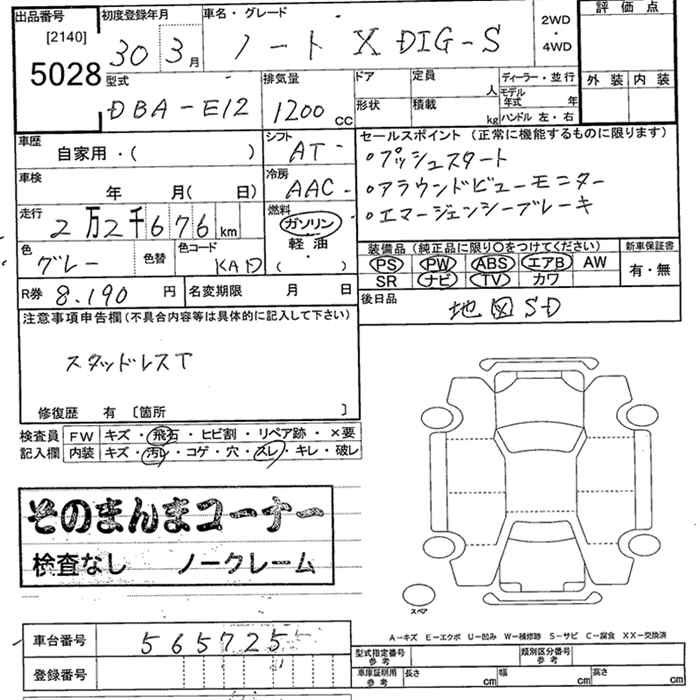 出品番号 初度登録年月 車名・グレード 評価点
[2140] 30 3月 ノート X DIG-S 2WD・4WD
5028 外装 内装
型式 排気量 ドア 定員 ディーラー・並行
DBA-E12 1200cc 人 モデル年式 年
形状 積載 kg ハンドル 左・右
車歴 シフト セールスポイント(正常に機能するものに限ります)
自家用・( ) AT- •プッシュスタート
車検 冷房 •アラウンドビューモニター
年 月( 日) AAC- •エマージェンシーブレーキ
走行 燃料
2万2千676km ガソリン
軽油
( ・ )
色 色替 色コード 装備品(純正品に限り○をつけてください) 新車保証書
グレー KAD PS PW ABS エアB AW 有・無
SR ナビ TV カワ
R券 8.190円 名変期限 月 日 後日品
地図SD
注意事項申告欄(不具合内容等は具体的に記入して下さい)
スタッドレスT
修復歴 有〔箇所 〕
検査員 FW キズ・飛石・ヒビ割・リペア跡・×要
記入欄 内装 キズ・汚レ・コゲ・穴・スレ・キレ・破レ
そのまんまコーナー
検査なし ノークレーム
スペア
A-キズ E-エクボ U-凹み W-補修跡 S-サビ C-腐食 XX-交換済
車台番号 565725
型式指定番号 参考 類別区分番号 参考
登録番号
車庫証明用 参考 長さ cm 幅 cm 高さ cm